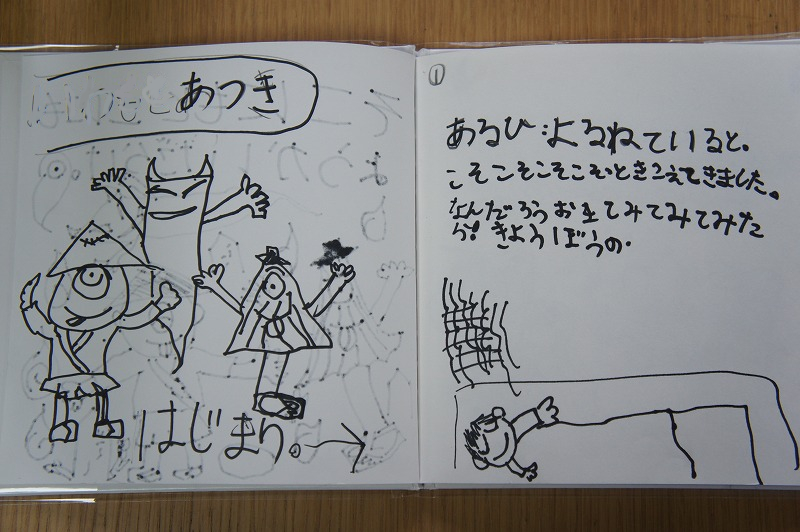 あつき
はじまり。
①
あるひよるねていると。
こそこそこそこそときこえてきました。
なんだろうおきてみてみてみた
ら!きようぼうの.